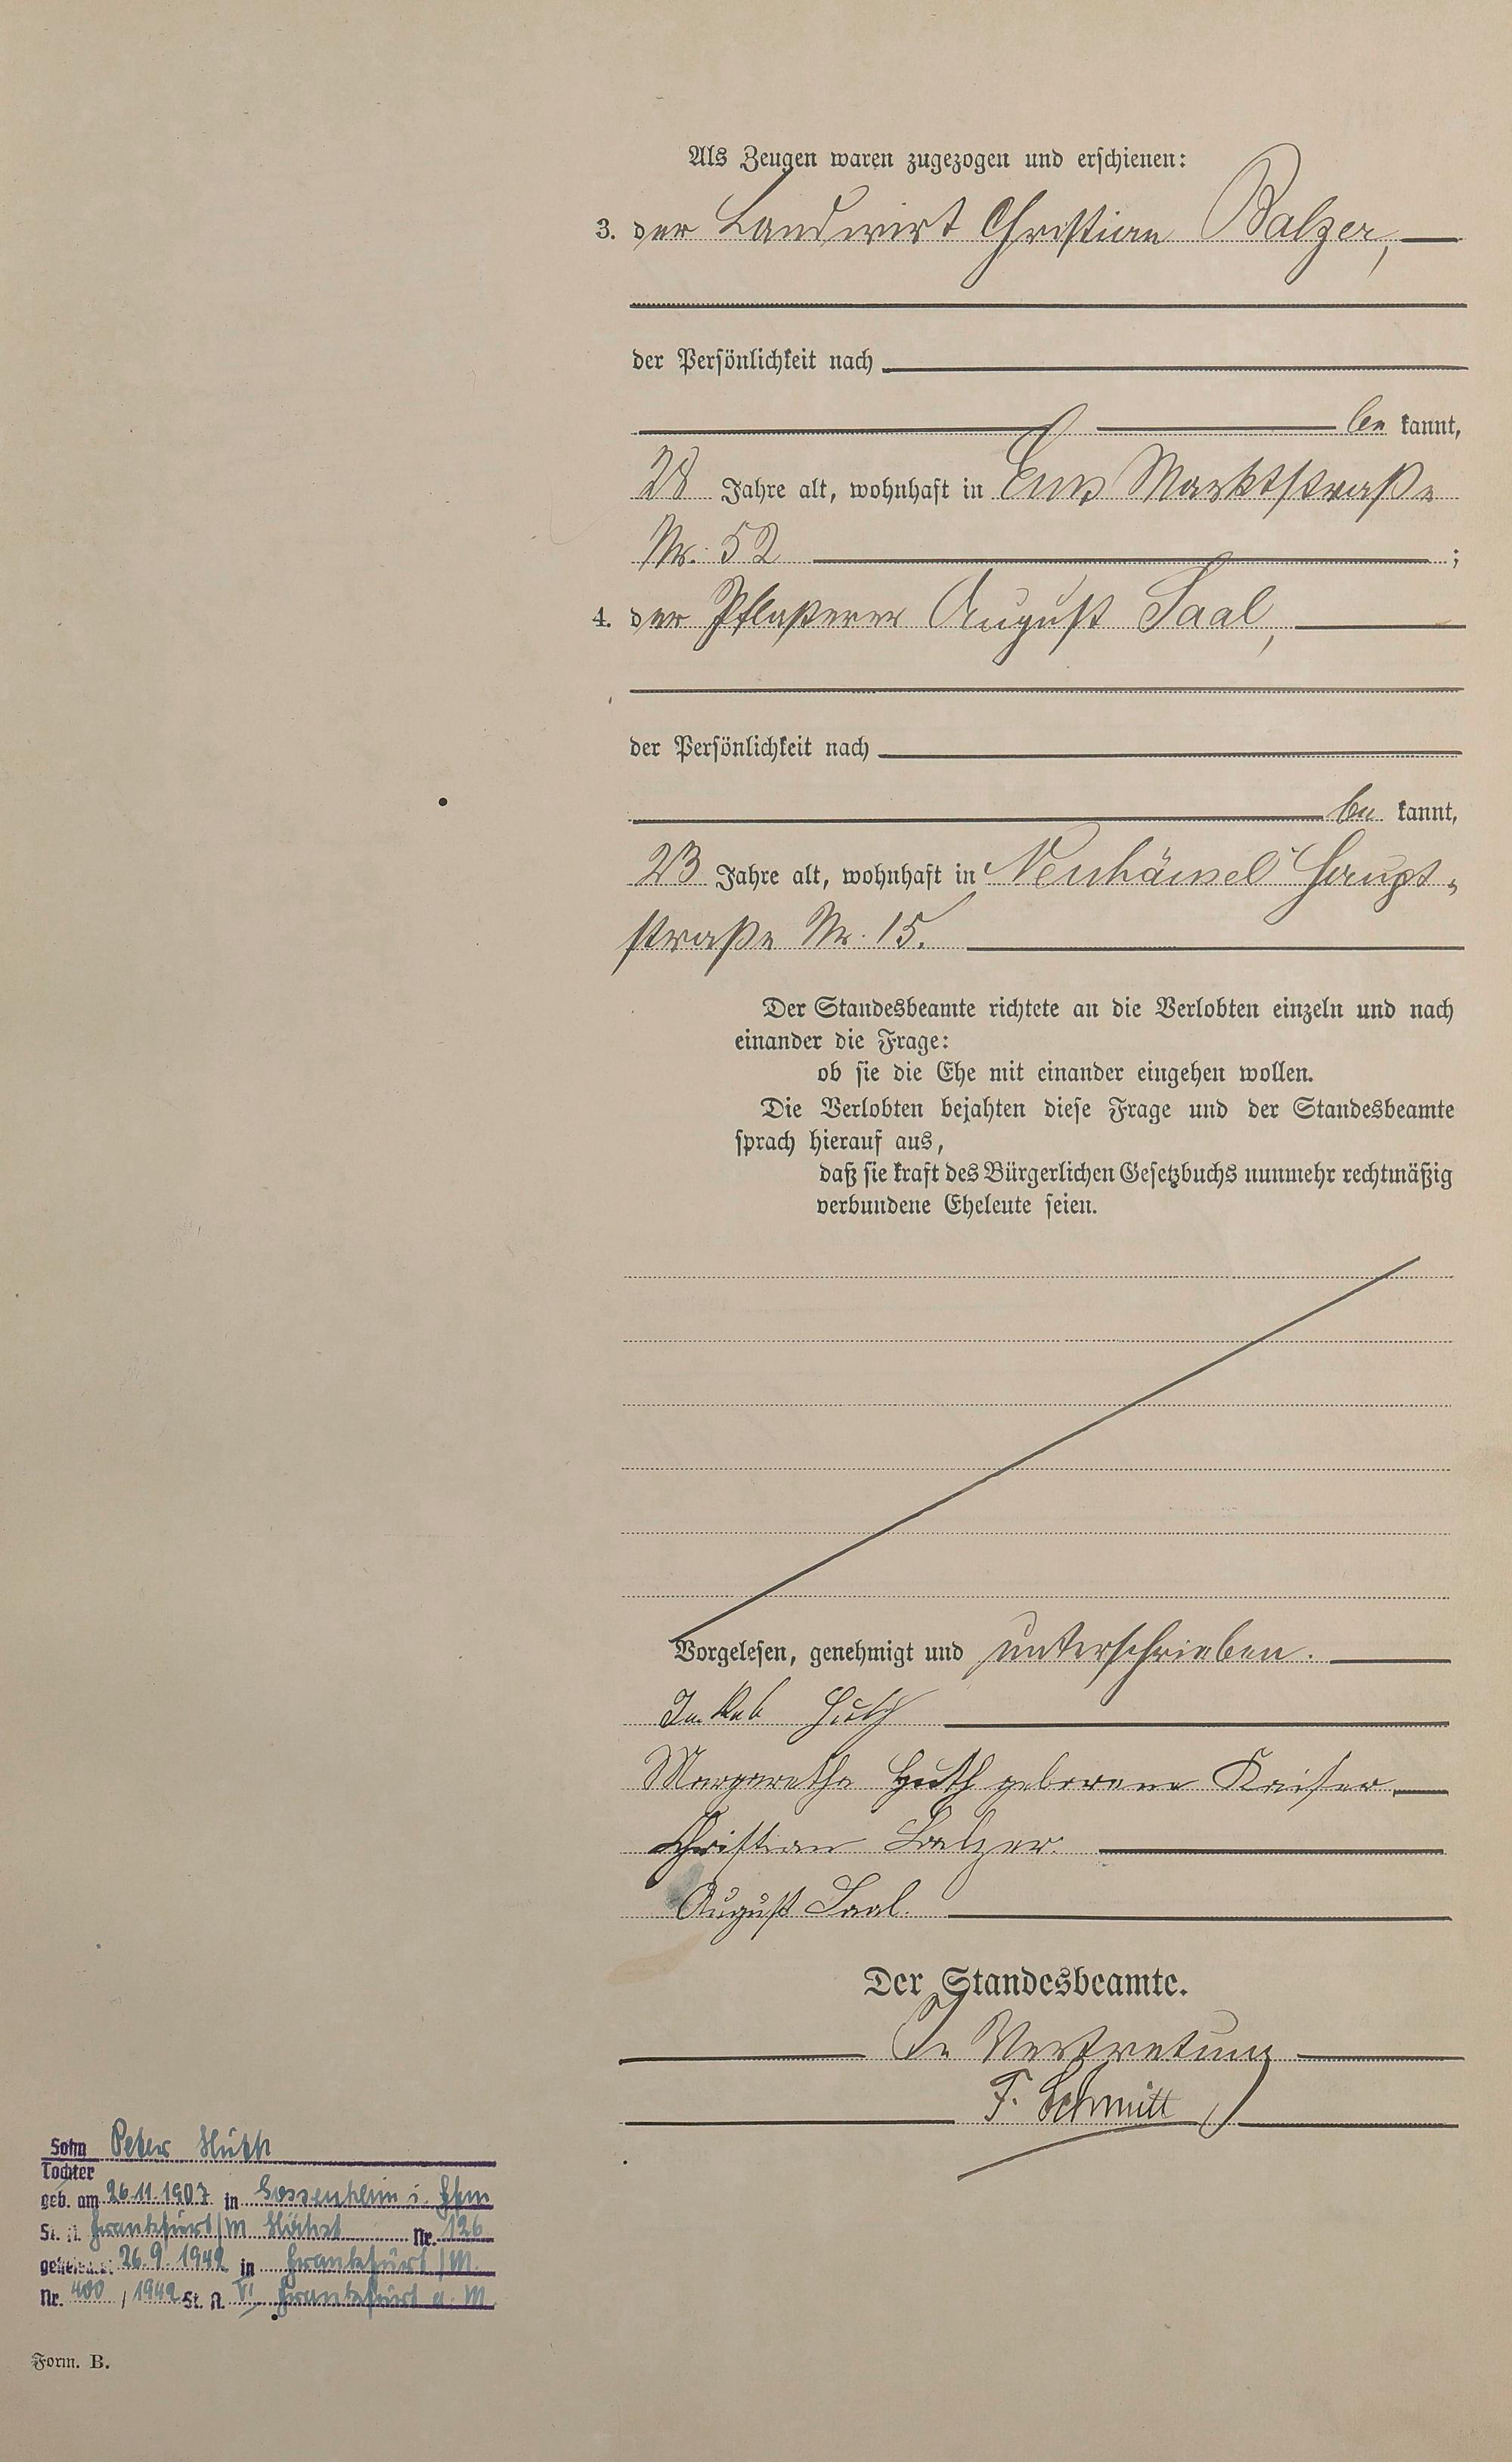 Als Zeugen waren zugezogen und erschienen:
3. der Landwirt Christian Balzer,
der Persönlichkeit nach
be kannt,
28 Jahre alt, wohnhaft in Ems Marktstraße
Nr. 52 ;
4. der Pflasterer August Saal,
der Persönlichkeit nach
be kannt,
23 Jahre alt, wohnhaft in Neuhäusel Haupt-
straße Nr. 15.
Der Standesbeamte richtete an die Verlobten einzeln und nach
einander die Frage:
ob sie die Ehe mit einander eingehen wollen.
Die Verlobten bejahten diese Frage und der Standesbeamte
sprach hierauf aus,
daß sie kraft des Bürgerlichen Gesetzbuchs nunmehr rechtmäßig
verbundene Eheleute seien.
Vorgelesen, genehmigt und unterschrieben.
Jakob Huth
Margaretha Huth geborene Kaiser
Christian Balzer.
August Saal.
Der Standesbeamte.
In Vertretung
F. Schmitt
Sohn Peter Huth
Tochter
geb. am 26.11.1907 in Sossenheim
St. A. Frankfurt/M Höchst Nr. 126
26.9.1942 in Frankfurt/M.
Nr. 400 / 1942 St. A. VI Frankfurt a. M.
Form. B.